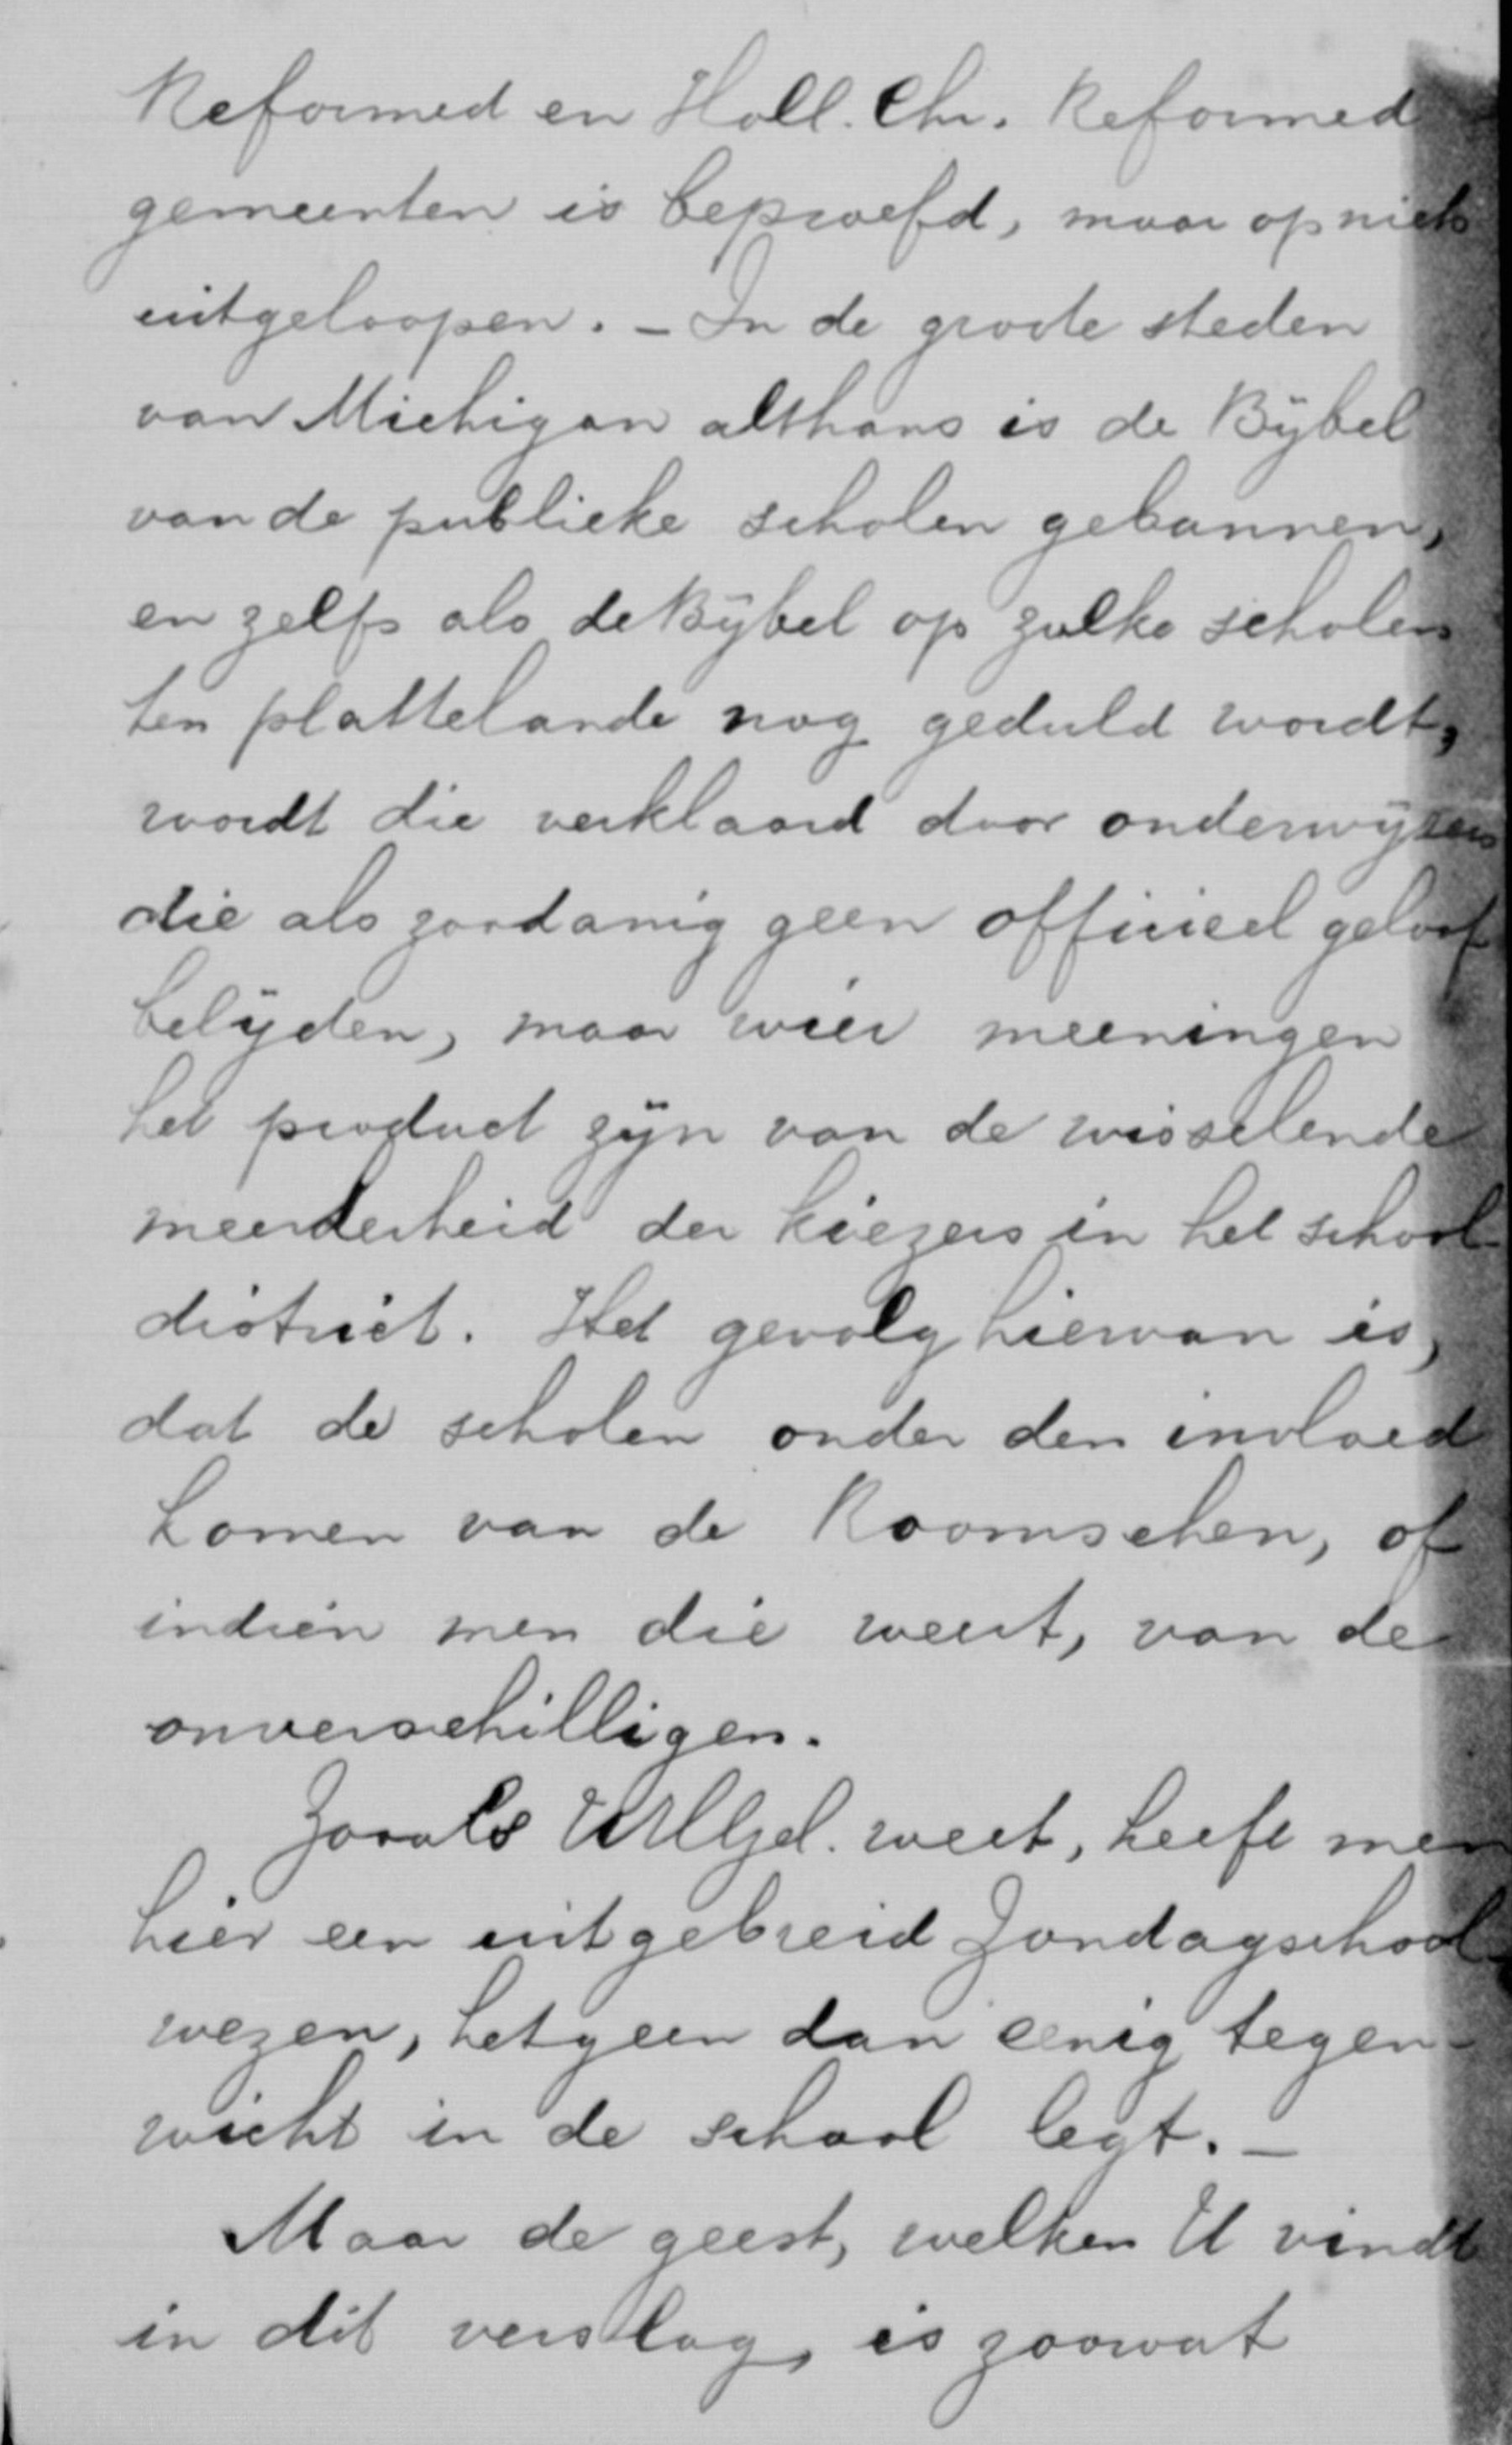 Reformed en Holl. Chr. Reformed
gemeenten is beproefd, maar op niets
uitgeloopen. – In de groote steden
van Michigan althans is de Bijbel
van de publieke scholen gebannen,
en zelfs als de Bijbel op zulke scholen
ten plattelande nog geduld wordt,
wordt die verklaard door onderwijzers
die als zoodanig geen officieel geloof
belijden, maar wier meeningen
het product zijn van de wisselende
meerderheid der kiezers in het school-
district. Het gevolg hiervan is,
dat de scholen onder den invloed
komen van de Roomschen, of
indien men die weert, van de
onverschilligen.
Zooals UWEd. weet, heeft men
hier een uitgebreid Zondagschool-
wezen, hetgeen dan eenig tegen-
wicht in de schaal legt. –
Maar de geest, welken U vindt
in dit verslag, is zoowat